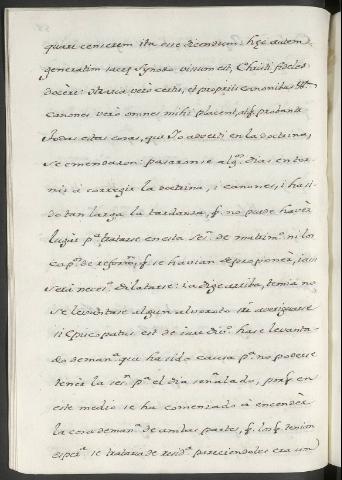 quasi censerem ita esse dicendum: hęc autem
generatim sacrę Synodo visum est, Christi fideles
docère: extra vero certis, et propriis canonibus &c.
Canones verò omnes mihi placent, atq. probantr
Todas estas cosas, que Jo advertí en la doctrina,
se emendaron: pasaronse alg.s dias en tor-
nar à corregir la doctrina, i canones, i ha si-
do tan larga la tardanza, q. no pude havèr
lugàr p.a tratarse en esta Ses.n de matrim.o ni los
cap.s de reform.n q. se havian de proponer, i assi
serà neces.o dilatarse: ia dige arriba, temia no
se levantase algun alvoroto sre averiguarse
si Episcopatus est de iure div.o hase levanta-
do de man.a que ha sido causa p.a no poderse
tenèr la ses.n p.a el dia señalado, porq. en
este medio se ha comenzado à encendèr
la cosa de man.a de ambas partes, q. los q. tenian
esper.a se tratara de resid.a pareciendoles era un